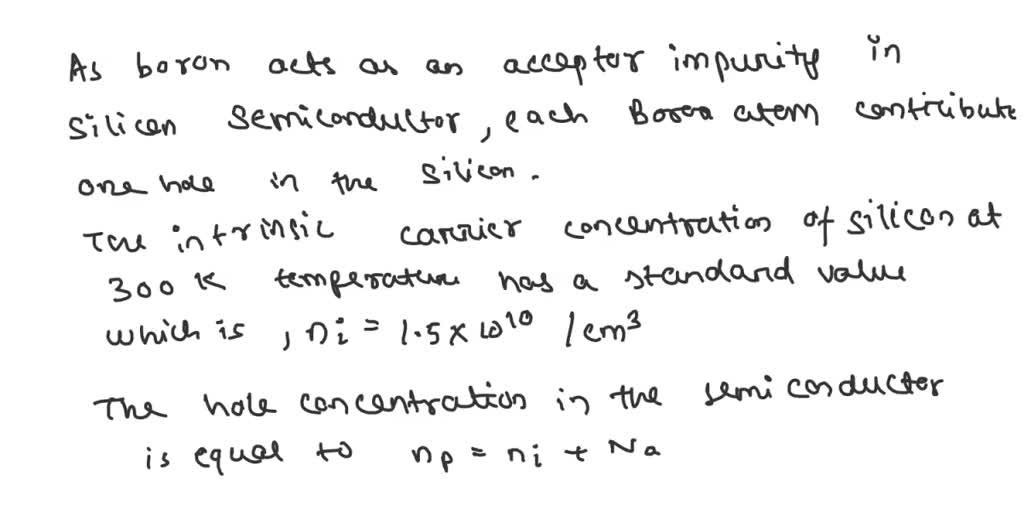 As boron acts as an acceptor impurity in
silicon semiconductor, each Boron atom contribute
one hole in the silicon.
The intrinsic carrier concentration of silicon at
300 K temperature has a standard value
which is, ni = 1.5 x 10^10 /cm^3
The hole concentration in the semiconductor
is equal to np = ni + Na